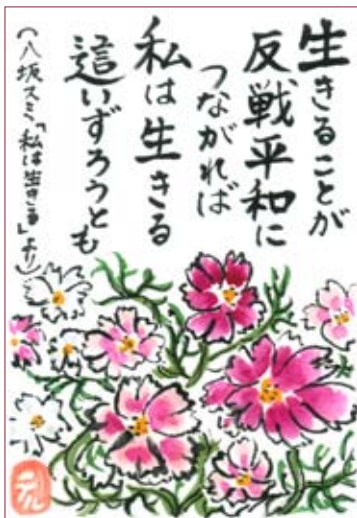 生きることが
反戦平和に
つながれば
私は生きる
這いずろうとも
(八坂スミ「私は生きる」より)
テル